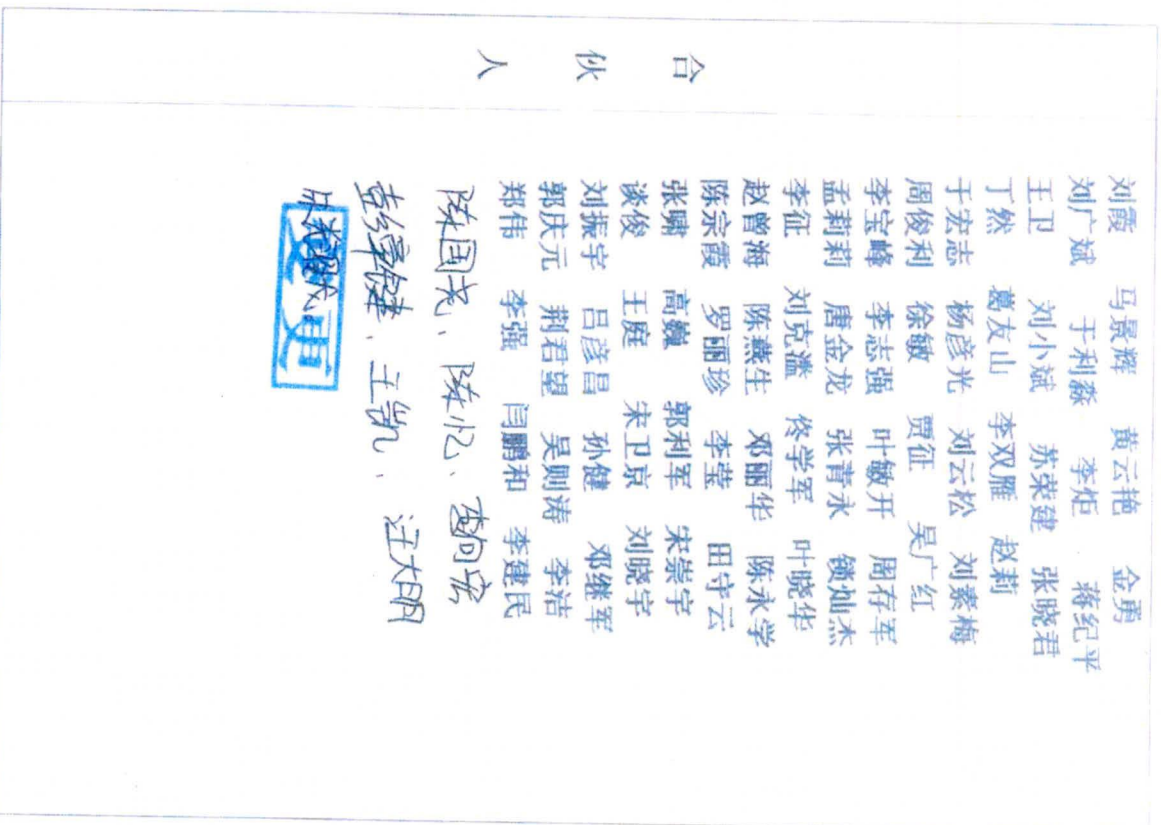 合伙人
刘霞 马景辉 黄云艳 金勇
刘广斌 于利淼 李炬 蒋纪平
王卫 刘小斌 苏荣建 张晓君
丁然 葛友山 李双雁 赵莉
于宏志 杨彦光 刘云松 刘素梅
周俊利 徐敏 贾征 吴广红
李宝峰 李志强 叶敏开 周存军
孟莉莉 唐金龙 张青永 锁灿杰
李征 刘克滥 佟学军 叶晓华
赵曾海 陈燕生 邓丽华 陈永学
陈宗霞 罗丽珍 李莹 田守云
张啸 高巍 郭利军 宋崇宇
谈俊 王庭 宋卫京 刘晓宇
刘振宇 吕彦昌 孙健 邓继军
郭庆元 荆君望 吴则涛 李洁
郑伟 李强 闫鹏和 李建民
陈国尧、陈忆、
王凯、汪大明
变更